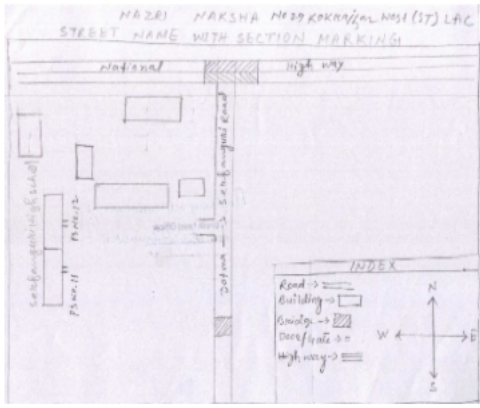 NAZRI NAKSHA NO 29 KOKRAJHAR West (ST) LAC
STREET NAME WITH SECTION MARKING
National High way
Serfanguri High School
PS No. 12
PS No. 11
Jotma → Serfanguri Road
INDEX
Road →
Building →
Bridge →
Door/Gate →
High way →
N
W E
S